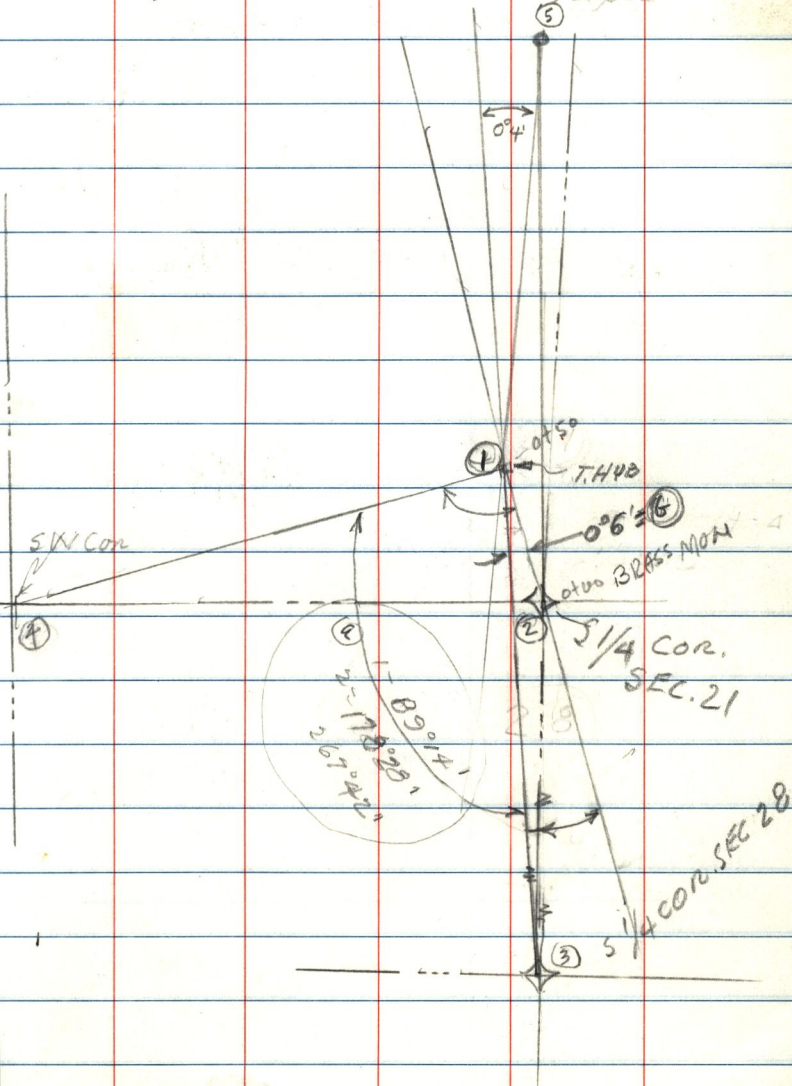 5
0°4'
1
0+50
T.HUB
0°6'= 6
SW COR
0+00 BRASS MON
4
a
2
S 1/4 COR.
SEC. 21
1- 89°14'
2- 178°28'
267°42'
28
S 1/4 COR. SEC 28
3